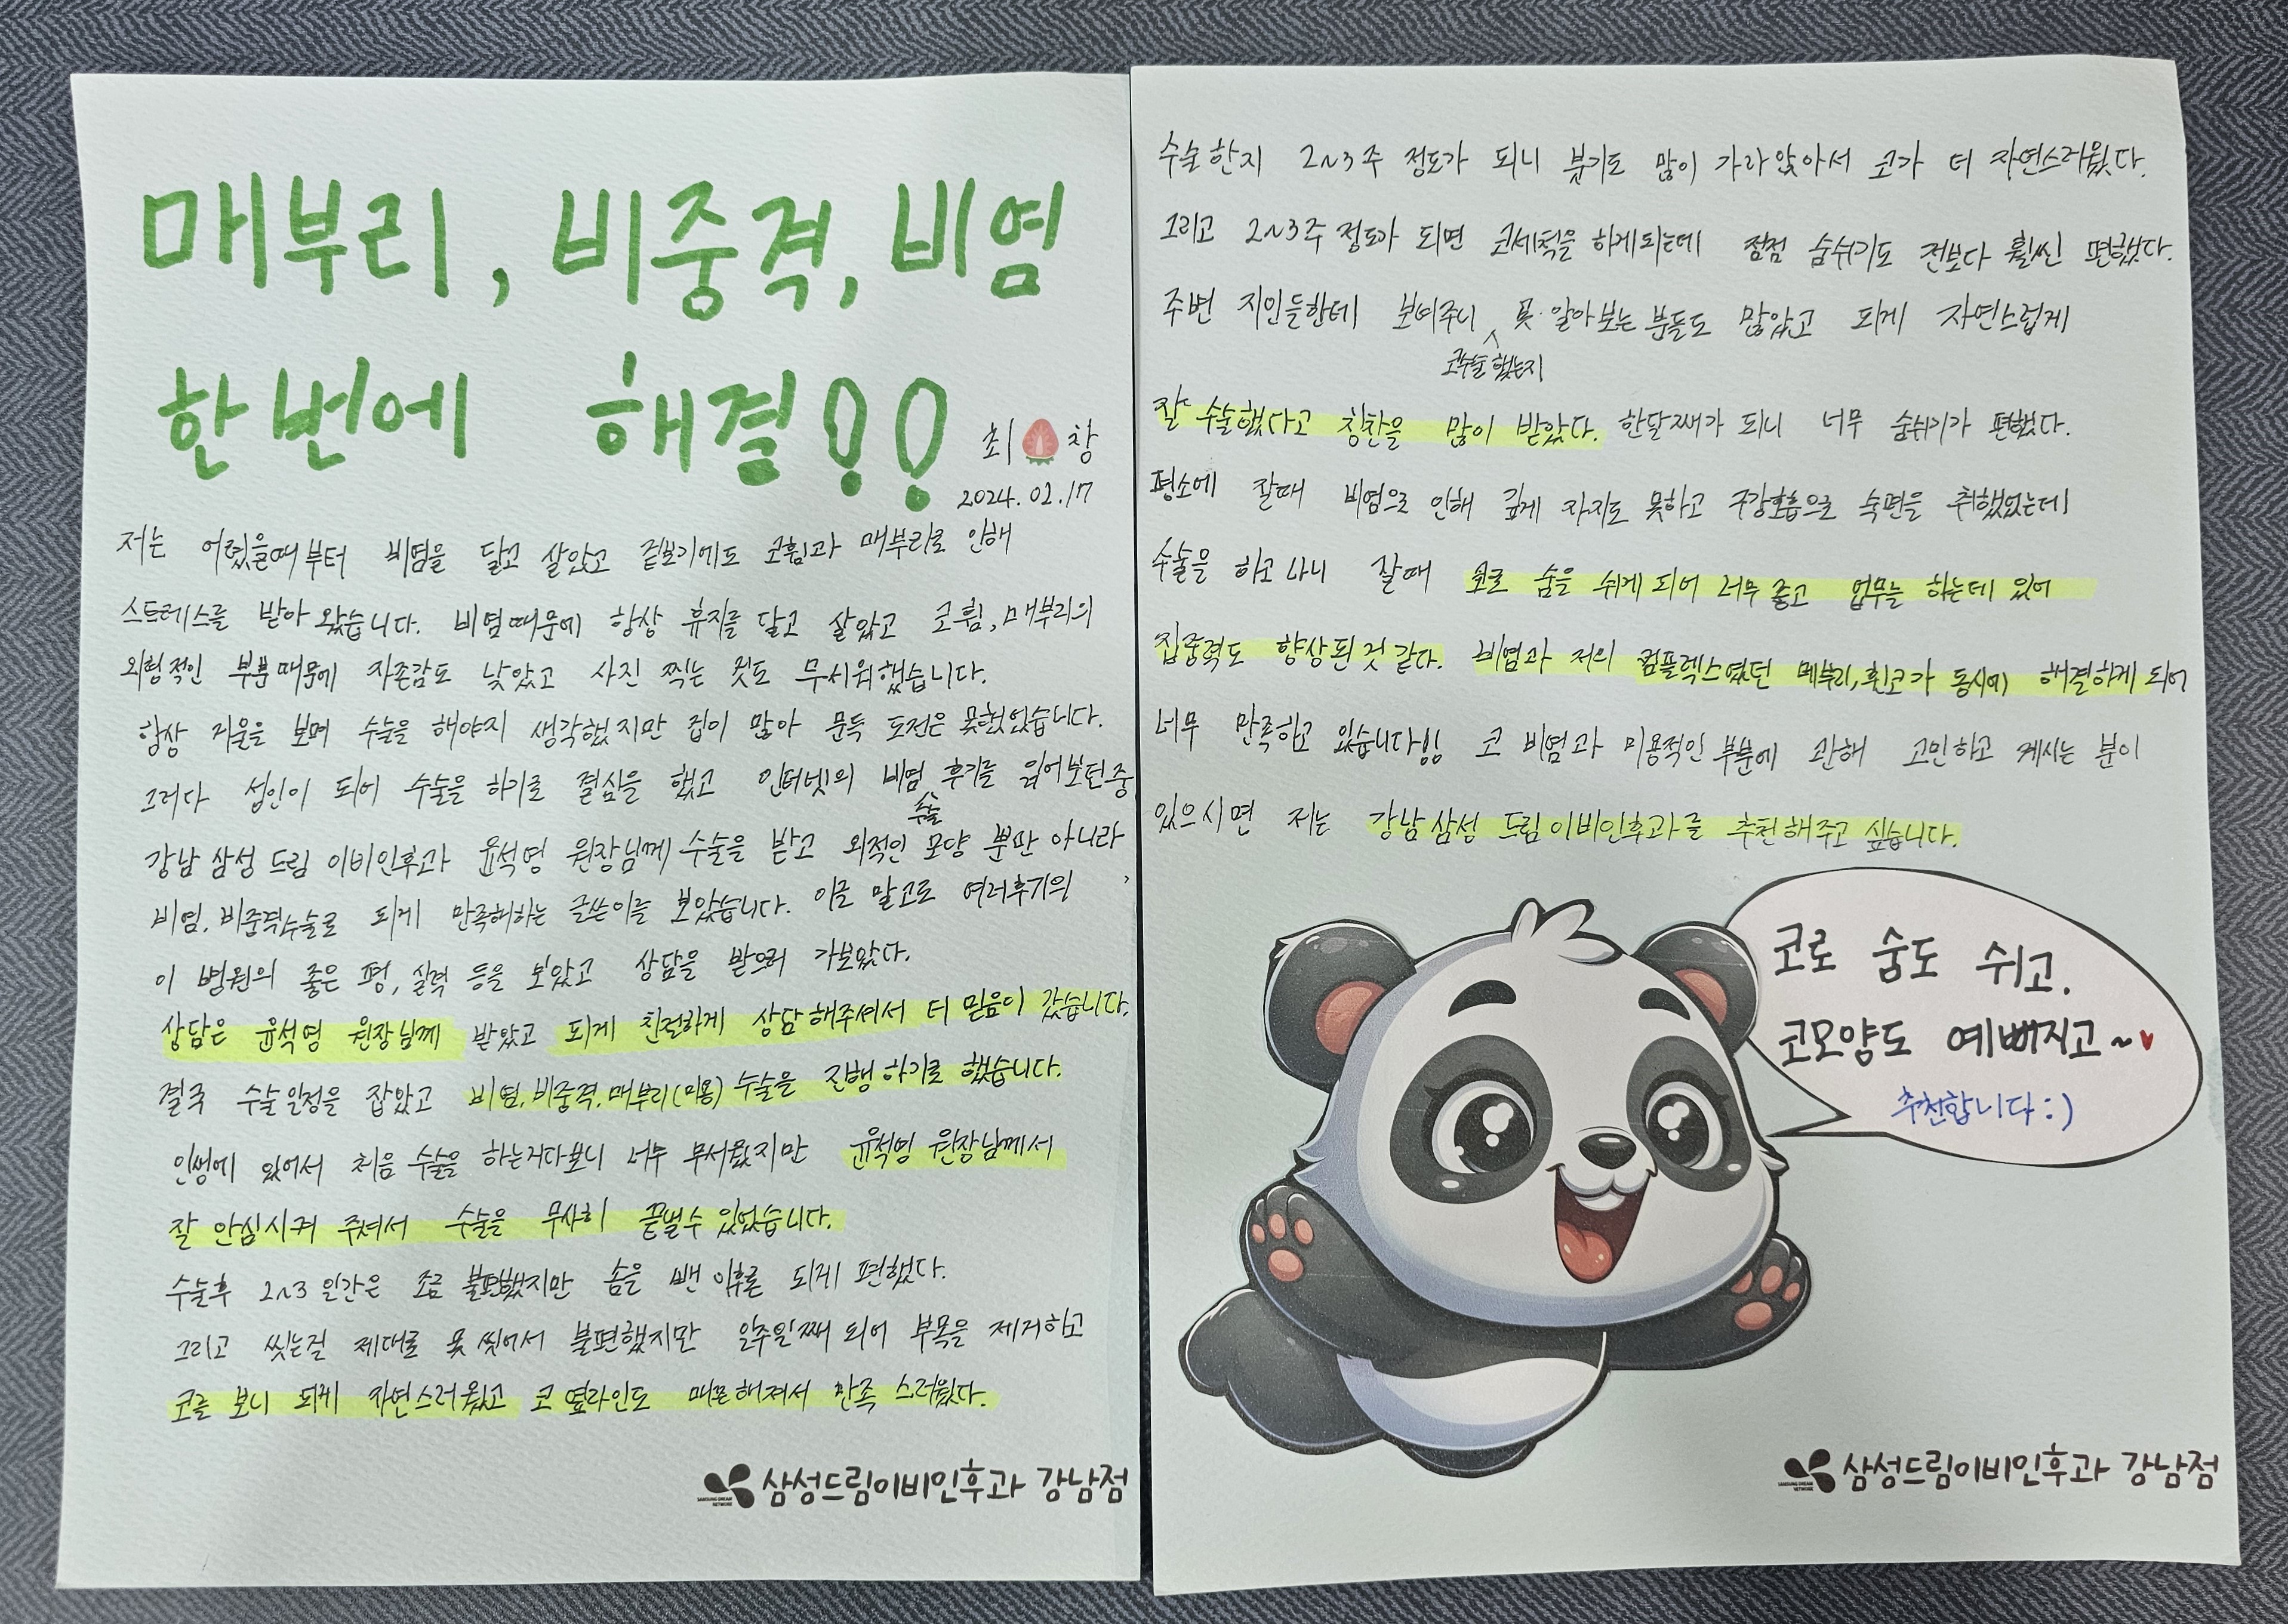 매부리, 비중격, 비염
한번에 해결!!
최 창
2024. 02. 17
저는 어렸을때부터 비염을 달고 살았고 겉보기에도 코휨과 매부리로 인해
스트레스를 받아 왔습니다. 비염때문에 항상 휴지를 달고 살았고 코휨, 매부리의
외형적인 부분때문에 자존감도 낮았고 사진 찍는 것도 무서워했습니다.
항상 거울을 보며 수술을 해야지 생각했지만 겁이 많아 문득 도전은 못했었습니다.
그러다 성인이 되어 수술을 하기로 결심을 했고 인터넷의 비염 수술 후기를 읽어보던중
강남 삼성 드림 이비인후과 윤석영 원장님께 수술을 받고 외적인 모양 뿐만 아니라
비염, 비중격수술로 되게 만족해하는 글쓴이를 보았습니다. 이글 말고도 여러후기의
이 병원의 좋은 평, 실력 등을 보았고 상담을 받으러 가보았다.
상담은 윤석영 원장님께 받았고 되게 친절하게 상담해주셔서 더 믿음이 갔습니다.
결국 수술일정을 잡았고 비염, 비중격, 매부리(미용) 수술을 진행하기로 했습니다.
인생에 있어서 처음 수술을 하는거다보니 너무 무서웠지만 윤석영 원장님께서
잘 안심시켜 주셔서 수술을 무사히 끝낼수 있었습니다.
수술후 2~3일간은 조금 불편했지만 솜을 뺀 이후론 되게 편했다.
그리고 씻는걸 제대로 못 씻어서 불편했지만 일주일째 되어 부목을 제거하고
코를 보니 되게 자연스러웠고 코 옆라인도 매끈해져서 만족스러웠다.
삼성드림이비인후과 강남점
수술한지 2~3주 정도가 되니 붓기도 많이 가라앉아서 코가 더 자연스러웠다.
그리고 2~3주 정도가 되면 코세척을 하게되는데 점점 숨쉬기도 전보다 훨씬 편했다.
주변 지인들한테 보여주니 코수술했는지 못 알아보는 분들도 많았고 되게 자연스럽게
잘 수술했다고 칭찬을 많이 받았다. 한달째가 되니 너무 숨쉬기가 편했다.
평소에 잘때 비염으로 인해 깊게 자지도 못하고 구강호흡으로 숙면을 취했었는데
수술을 하고나니 잘때 코로 숨을 쉬게되어 너무 좋고 업무를 하는데 있어
집중력도 향상된 것 같다. 비염과 저의 컴플렉스였던 매부리, 휜코가 동시에 해결하게 되어
너무 만족하고 있습니다!! 코 비염과 미용적인 부분에 관해 고민하고 계시는 분이
있으시면 저는 강남삼성 드림이비인후과를 추천해주고 싶습니다.
코로 숨도 쉬고,
코모양도 예뻐지고~
추천합니다 :)
SAMSUNG DREAM NETWORK 삼성드림이비인후과 강남점